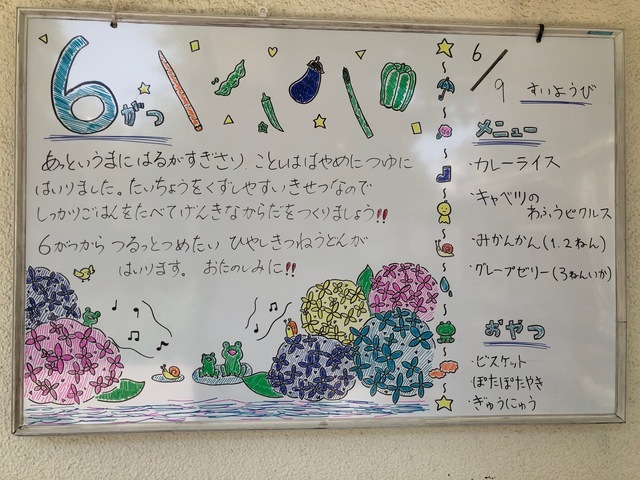 6がつ
あっというまにはるがすぎさり、ことしははやめにつゆに
はいりました。たいちょうをくずしやすいきせつなので
しっかりごはんをたべてげんきなからだをつくりましょう!!
6がつから つるっとつめたい ひやしきつねうどんが
はいります。 おたのしみに!!
6/9 すいようび
メニュー
・カレーライス
・キャベツの
わふうピクルス
・みかんかん(1.2ねん)
・グレープゼリー(3ねんいか)
おやつ
・ビスケット
ぽたぽたやき
・ぎゅうにゅう